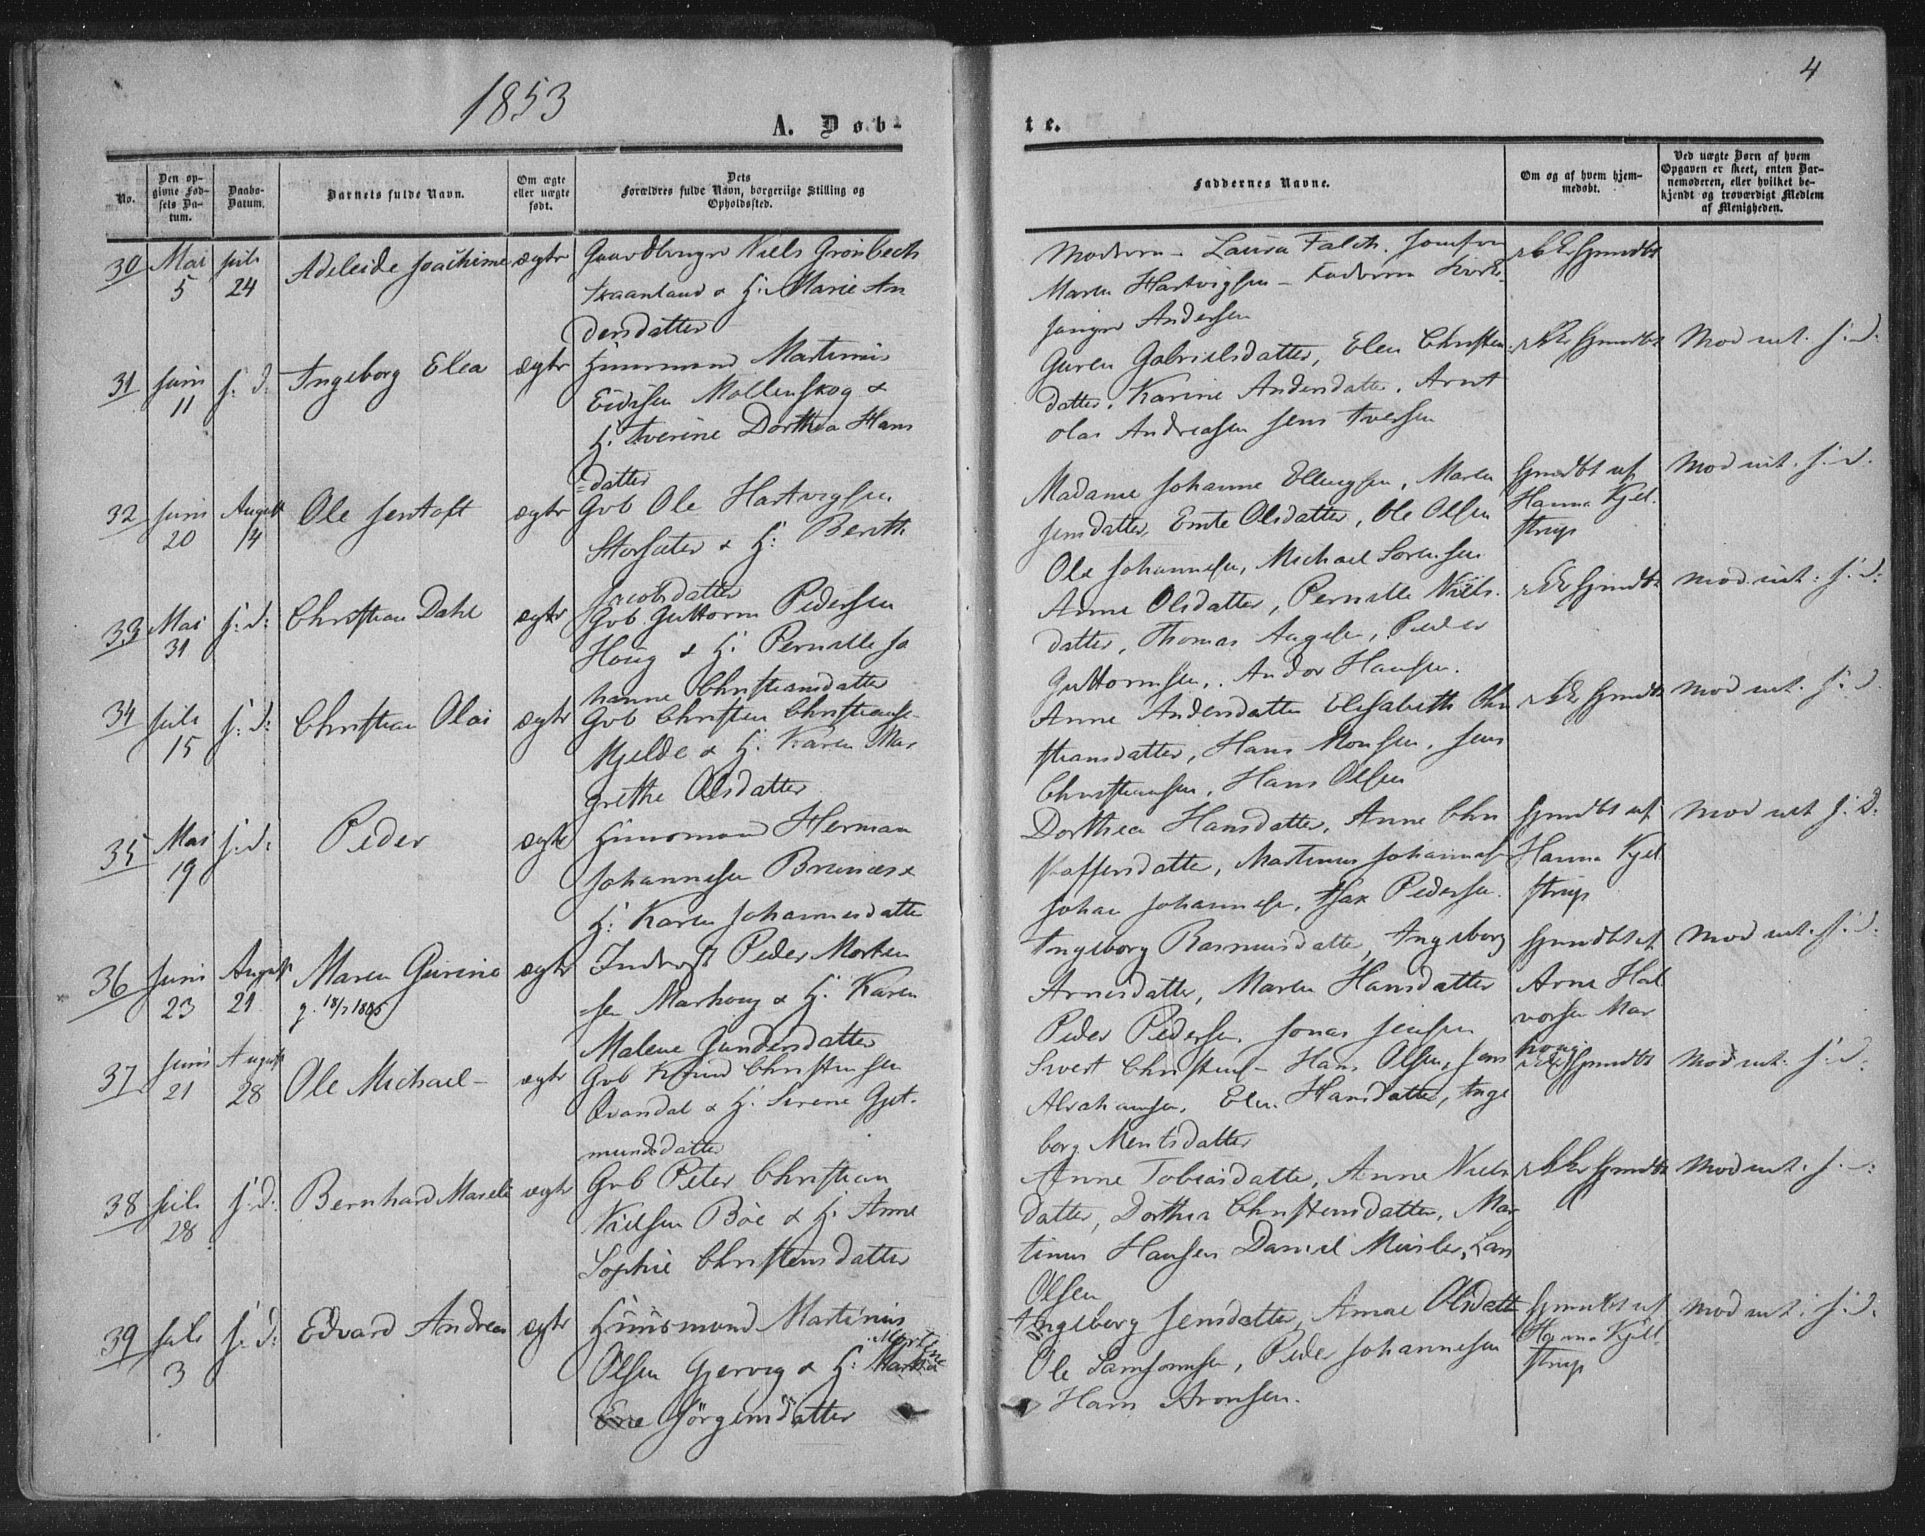 1853
4
A. Døb-
te.
No.
Den opgivne Fødsels Datum.
Daabs-Datum.
Barnets fulde Navn.
Om ægte eller uægte født.
Dets
Forældres fulde Navn, borgerlige Stilling og
Opholdssted.
Faddernes Navne.
Om og af hvem hjemmedøbt.
Ved uægte Børn af hvem
Opgaven er skeet, enten Barnemoderen, eller hvilket bekjendt og troværdigt Medlem
af Menigheden.
30 Mai 5 Juli 24 Adeleide Joachime ægte Gaardbruger Niels Grönbech
Skaanland & H: Marie An
dersdatter
Moderen - Laura Falch. Jomfru
Maren Hartvigsen - Faderen Kirke
sanger Andersen
31 Juni 11 s: d: Ingeborg Elea ægte Huusmand Martinus
Eidisen Möllenskog &
H: Iverine Dorthea Hans
datter
Guren Gabrielsdatter, Elen Christens
datter, Karine Andersdatter, Arnt
Olai Andreasen Jens Iversen
Mod int. s: d:
32 Juni 20 August 14 Ole Jentoft ægte Gvb Ole Hartvigsen
Storsæter & H: Berith
Jacobsdatter
Madame Johanne Ellingsen, Maren
Jensdatter, Emte Olsdatter, Ole Olsen
Ole Johannesen, Michael Sörensen
Hjmdbt af
Hanna Kjel
strup
Mod int. s: d:
33 Mai 31 s: d: Christian Dahl ægte Gvb Guttorm Pedersen
Houg & H: Pernille Jo
hanne Christiansdatter
Anne Olsdatter, Pernille Niels
datter, Thomas Aagesen, Peder
Guttormsen, Andor Hansen.
ikke Hjmdbt
Mod int: s: d:
34 Juli 15 s: d: Christian Olai ægte Gvb Christen Christians-
Mjelde & H: Karen Mar
grethe Olsdatter
Anne Andersdatter Elisabeth Chri
stiansdatter, Hans Monsen, Jens
Christiansen, Hans Olsen
ikke Hjmdbt
Mod int. s: d:
35 Mai 19 s: d: Peder ægte Huusmand Herman
Johannesen &
H: Karen Johannesdatter
Dorthea Hansdatter, Anne Chri
stoffersdatter, Martinus Johannes
Johan Johannesen, Isak Pedersen.
Hjmdbt af
Hanna Kjel
strup
Mod int s: d:
36 Juni 23 August 21 Maren Gurine ægte Inderst Peder Morten
sen Marhoug & H: Karen
Malene Gundersdatter
Ingeborg Rasmusdatter, Ingeborg
Arnesdatter, Maren Hansdatter
Peder Pedersen, Jonas Jensen
Hjmdbt af
Arne Hal
vorsen Mar
houg
Mod int. s: d:
37 Juni 21 August 28 Ole Michael ægte Gvb Knud Christensen
Qvandal & H: Serene Gjet
mundsdatter
Sivert Christens- Hans Olsen, Jens
Abrahamsen, Elen Hansdatter, Inge
borg Mentsdatter
ikke Hjmdbt
Mod int. s: d:
38 Juli 28 s: d: Bernhard ægte Gvb Peter Christian
Nielsen Böe & H: Anne
Sophie Christensdatter
Anne Tobiasdatter, Anne Niels
datter, Dorthea Christensdatter, Mar
tinus Hansen Daniel Lars
Olsen
ikke Hjmdbt
Mod int. s: d:
39 Juli 3 s: d: Edvard Andreas ægte Huusmand Martinus
Olsen Gjervig & H:
Jörgensdatter
Ingeborg Jensdatter, Anne Olsdatt
Ole Samsonsen, Peder Johannesen
Hans Aronsen.
Hjmdbt af
Hanna Kjel
strup
Mod int. s: d: